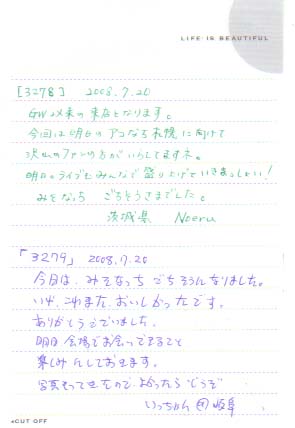 LIFE IS BEAUTIFUL
[3278] 2008.7.20
GW以来の来店となります。
今回は明日のアコなる札幌に向けて
沢山のファンの方がいらしてますネ。
明日のライブもみんなで盛り上げていきましょい!
みそなっち ごちそうさまでした。
茨城県 Noeru
「3279」 2008.7.20
今日は、みそなっち ごちそうになりました。
いや、これまた、おいしかったです。
ありがとうございました。
明日 会場でお会いできること
楽しみにしております。
写真もってきたので よかったら どうぞ
いっちゃん @岐阜
CUT OFF